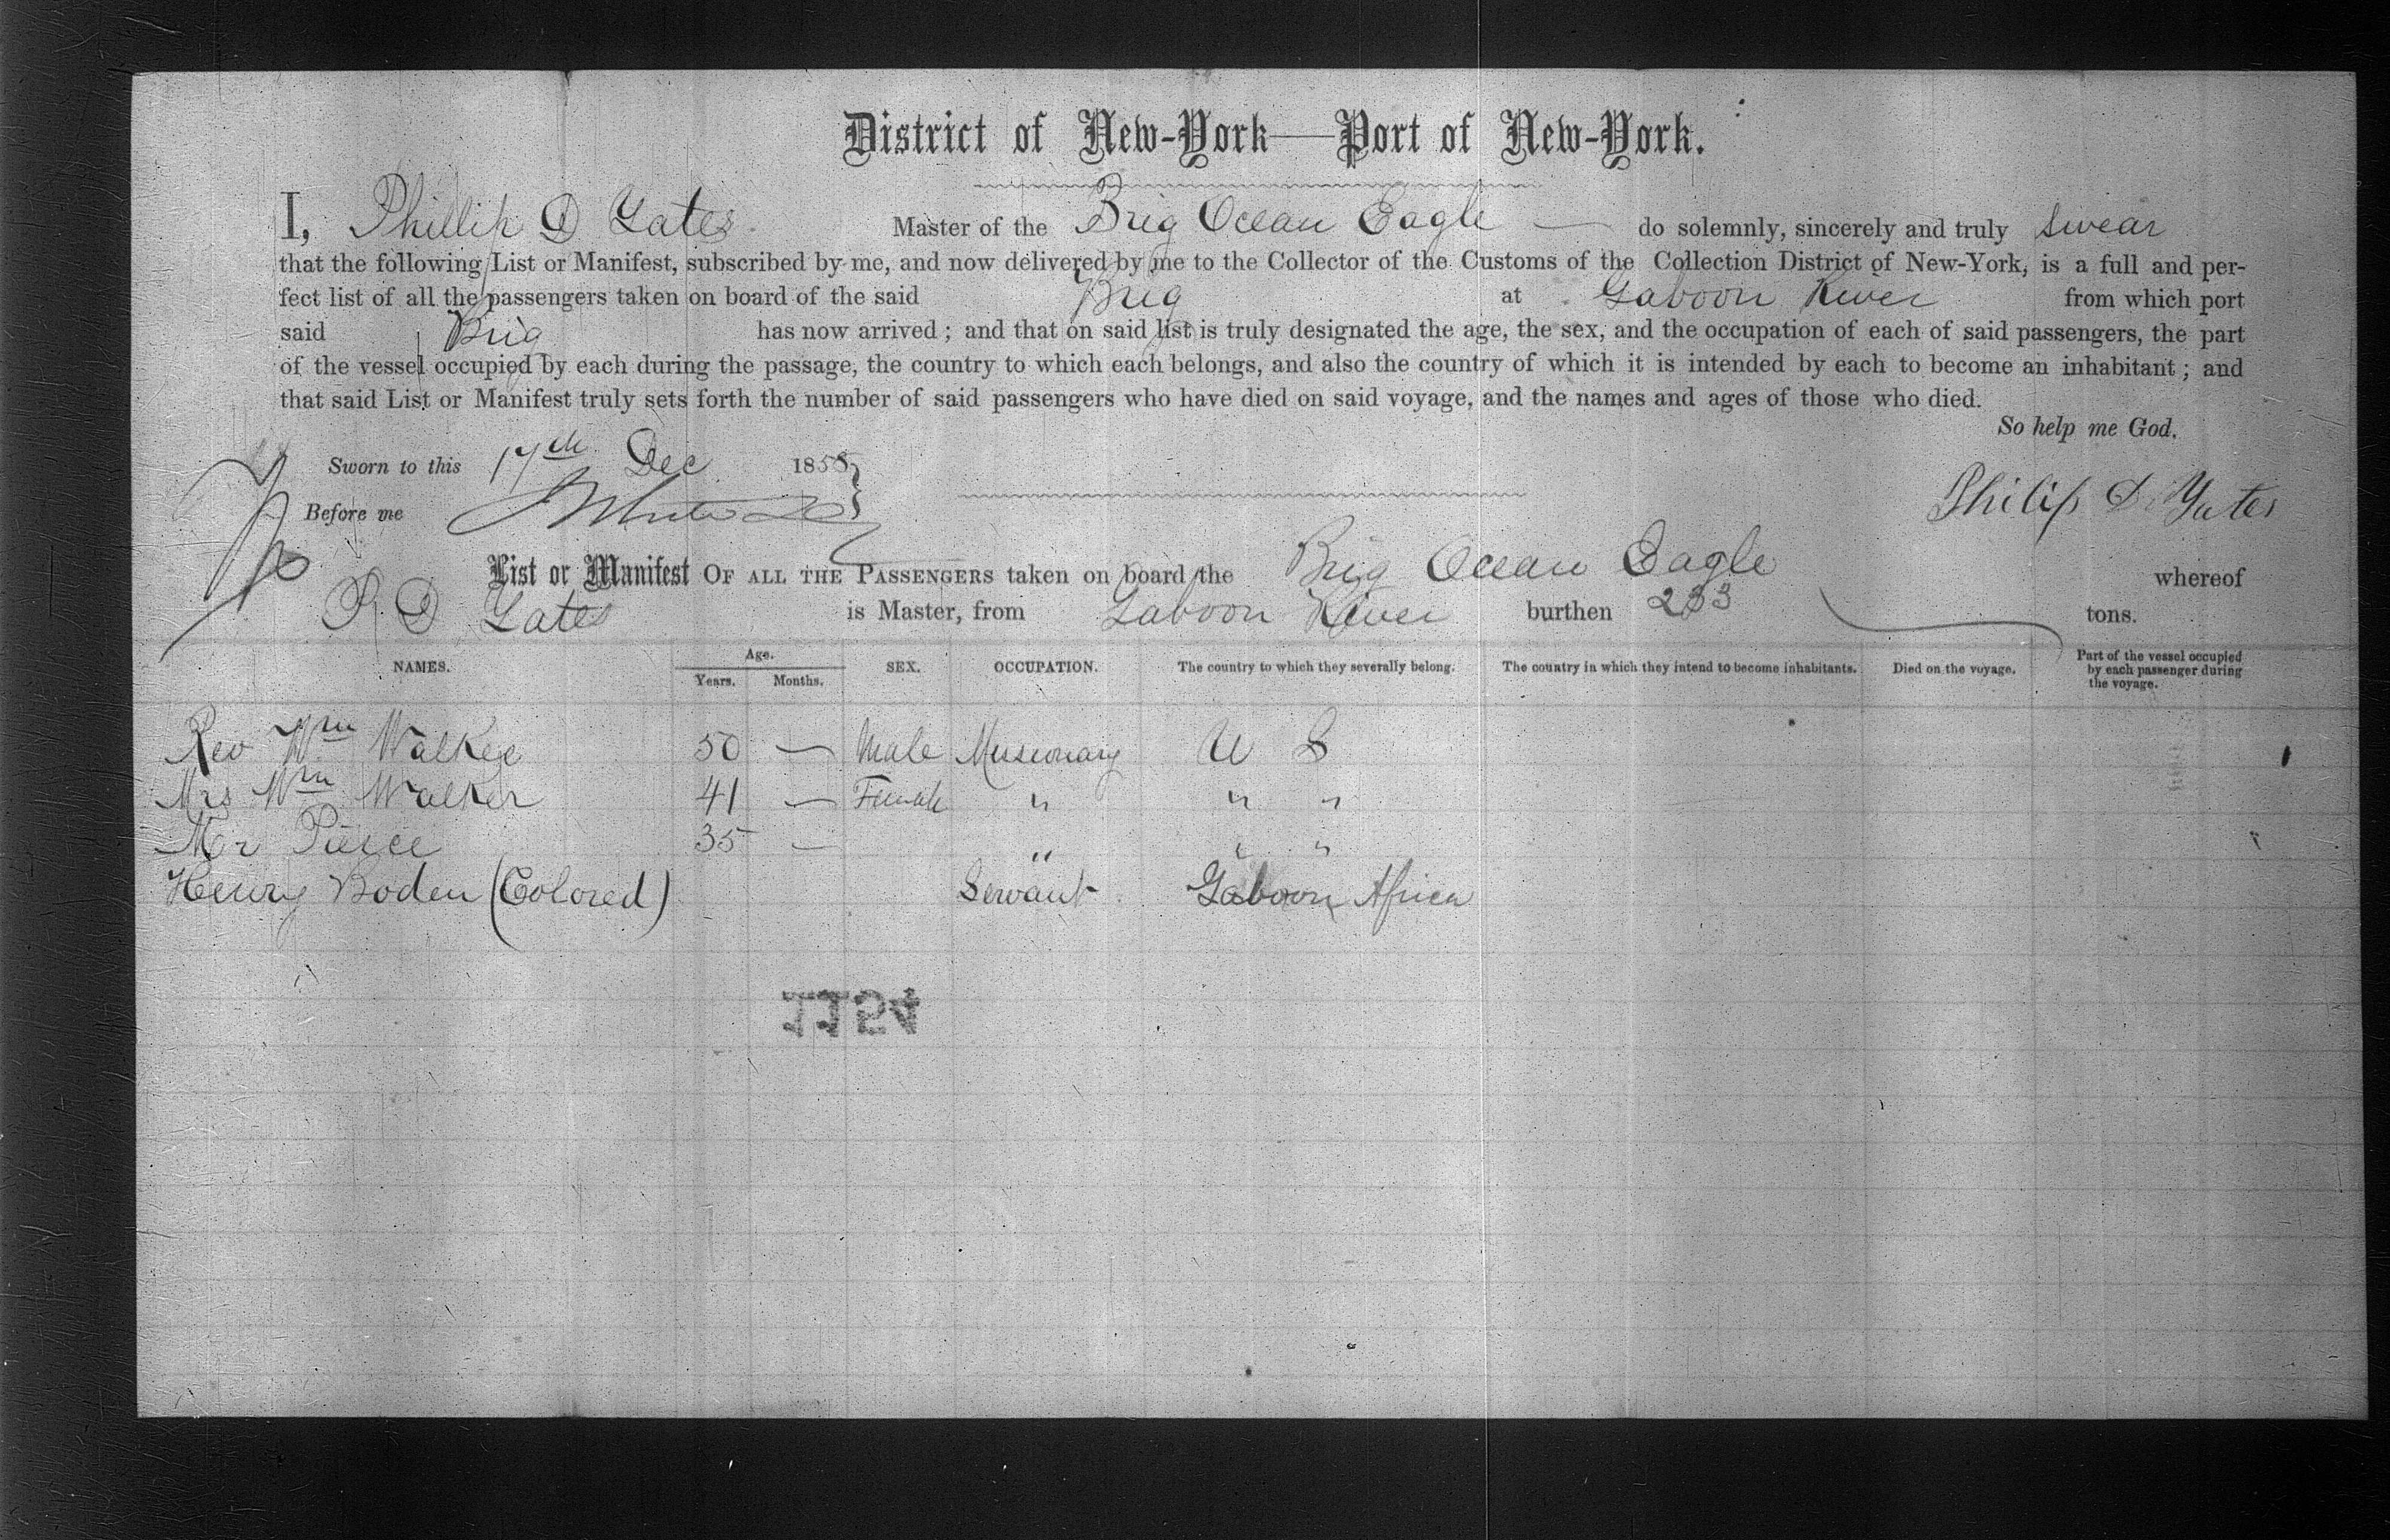 District of New-York—Port of New-York.
I, Phillip D Yates Master of the Brig Ocean Eagle — do solemnly, sincerely and truly swear
that the following List or Manifest, subscribed by me, and now delivered by me to the Collector of the Customs of the Collection District of New-York, is a full and per-
fect list of all the passengers taken on board of the said Brig at Gaboon River from which port
said Brig has now arrived; and that on said list is truly designated the age, the sex, and the occupation of each of said passengers, the part
of the vessel occupied by each during the passage, the country to which each belongs, and also the country of which it is intended by each to become an inhabitant; and
that said List or Manifest truly sets forth the number of said passengers who have died on said voyage, and the names and ages of those who died.
So help me God.
Sworn to this 17th Dec 1858
Before me
Philip D. Yates
List or Manifest OF ALL THE PASSENGERS taken on board the Brig Ocean Eagle whereof
P D Yates is Master, from Gaboon River burthen 233 tons.
NAMES. Age. Years. Months. SEX. OCCUPATION. The country to which they severally belong. The country in which they intend to become inhabitants. Died on the voyage. Part of the vessel occupied by each passenger during the voyage.
Rev Wm Walker 50 — Male Missionary U S
Mrs Wm Walker 41 — Female " " "
Mr Pierce 35 — " " "
Henry Boden (Colored) Servant Gaboon Africa
1154